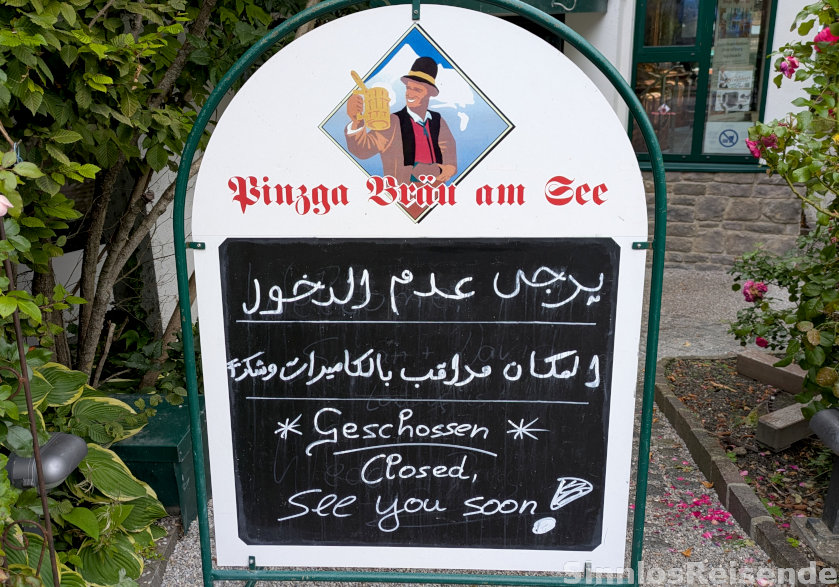 Pinzga Bräu am See
يرجى عدم الدخول
المكان مراقب بالكاميرات وشكرًا
* Geschossen *
Closed,
See you soon!
SinnlosReisende